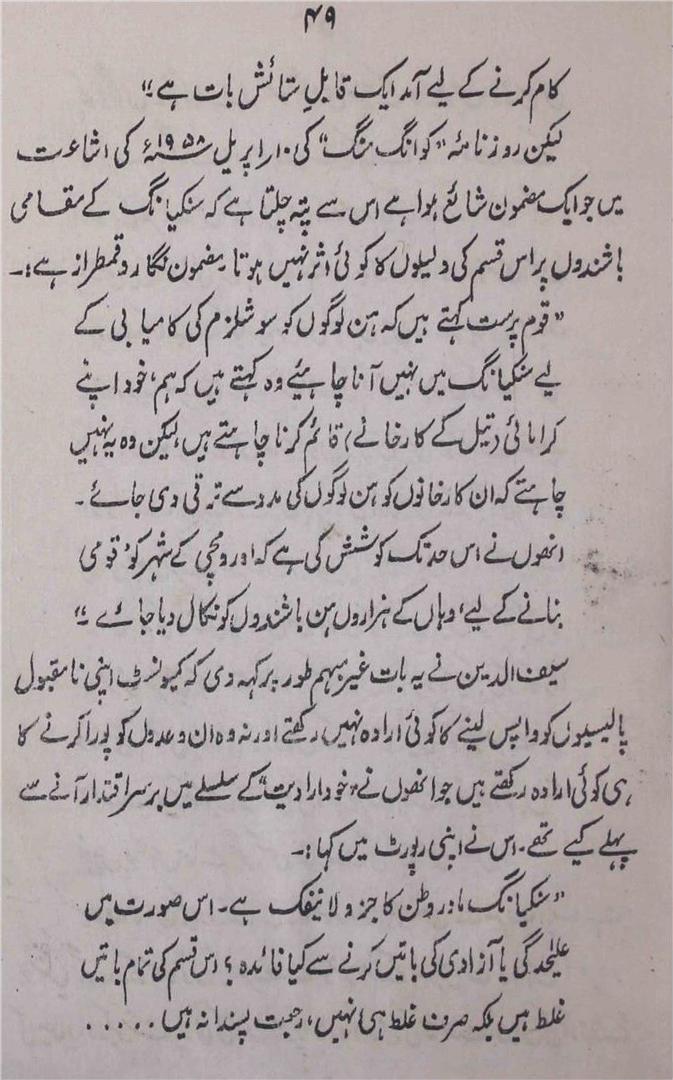 ۴۹
کام کرنے کے لیے آمد ایک قابلِ ستائش بات ہے۔"
لیکن روزنامہ "کوانگ منگ" کی ۱۰ اپریل ۱۹۵۸ء کی اشاعت
میں جو ایک مضمون شائع ہوا ہے اس سے پتہ چلتا ہے کہ سنکیانگ کے مقامی
باشندوں پر اس قسم کی دلیلوں کا کوئی اثر نہیں ہوتا۔ مضمون نگار رقمطراز ہے:۔
"قوم پرست کہتے ہیں کہ ہن لوگوں کو سوشلزم کی کامیابی کے
لیے سنکیانگ میں نہیں آنا چاہئیے وہ کہتے ہیں کہ ہم، خود اپنے
کرامائی (تیل کے کارخانے) قائم کرنا چاہتے ہیں، لیکن وہ یہ نہیں
چاہتے کہ ان کارخانوں کو ہن لوگوں کی مدد سے ترقی دی جائے۔
انھوں نے اس حد تک کوشش کی ہے کہ اورومچی کے شہر کو 'قومی
بنانے کے لیے' وہاں کے ہزاروں ہن باشندوں کو نکال دیا جائے۔"
سیف الدین نے یہ بات غیر مبہم طور پر کہہ دی کہ کمیونسٹ اپنی نامقبول
پالیسیوں کو واپس لینے کا کوئی ارادہ نہیں رکھتے اور نہ وہ ان وعدوں کو پورا کرنے کا
ہی کوئی ارادہ رکھتے ہیں جو انھوں نے "خود ارادیت" کے سلسلے میں برسراقتدار آنے سے
پہلے کیے تھے۔ اس نے اپنی رپورٹ میں کہا:۔
"سنکیانگ مادر وطن کا جزو لاینفک ہے۔ اس صورت میں
علیٰحدگی یا آزادی کی باتیں کرنے سے کیا فائدہ؟ اس قسم کی تمام باتیں
غلط ہیں بلکہ صرف غلط ہی نہیں، رجعت پسندانہ ہیں . . . . .